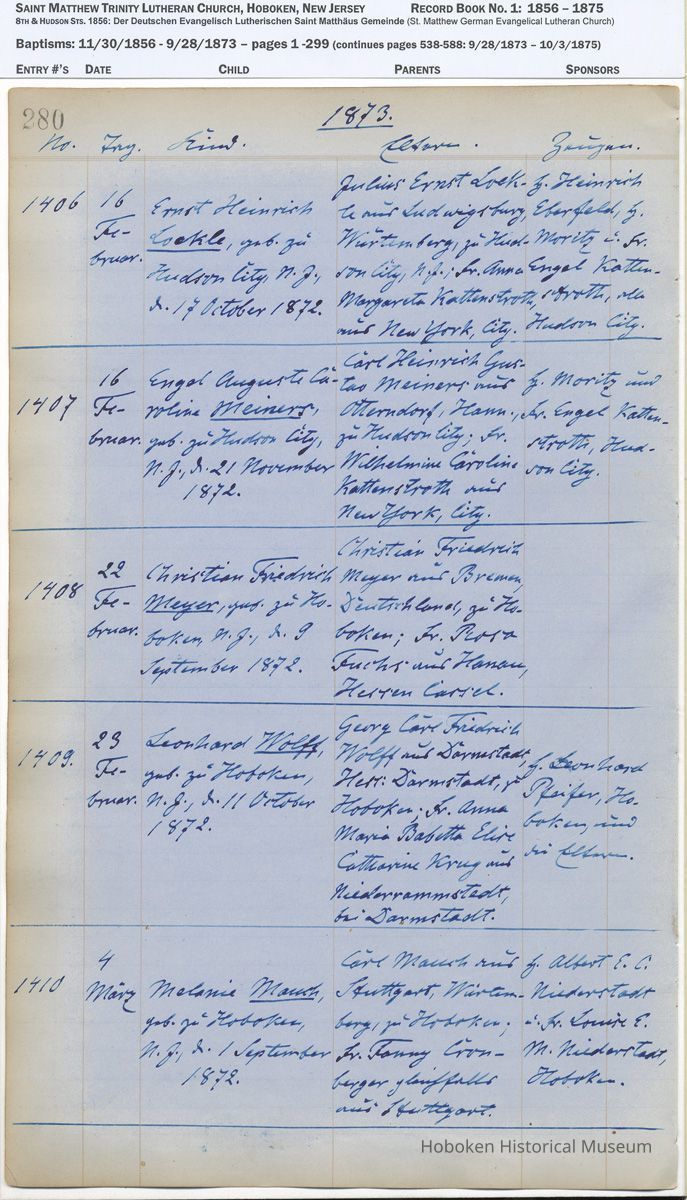 SAINT MATTHEW TRINITY LUTHERAN CHURCH, HOBOKEN, NEW JERSEY RECORD BOOK NO. 1: 1856 – 1875
8TH & HUDSON STS. 1856: Der Deutschen Evangelisch Lutherischen Saint Matthäus Gemeinde (St. Matthew German Evangelical Lutheran Church)
Baptisms: 11/30/1856 - 9/28/1873 – pages 1 -299 (continues pages 538-588: 9/28/1873 – 10/3/1875)
ENTRY #'S DATE CHILD PARENTS SPONSORS
280 1873.
No. Tag. Kind. Eltern. Zeugen.
1406
16
Fe-
bruar.
Ernst Heinrich
Loekle, geb. zu
Hudson City, N. J.,
d. 17 October 1872.
Julius Ernst Loek-
le aus Ludwigsburg,
Würtemberg, zu Hud-
son City, N. J.; Fr. Anna
Margareta Kattenstroth,
aus New York, City.
H. Heinrich
Eberfeld, H.
Moritz u. Fr.
Engel Katten-
stroth, alle
Hudson City.
1407
16
Fe-
bruar.
Engel Auguste Ca-
roline Meiners,
geb. zu Hudson City,
N. J., d. 21 November
1872.
Carl Heinrich Gus-
tav Meiners aus
Otterndorf, Hann.,
zu Hudson City; Fr.
Wilhelmine Caroline
Kattenstroth aus
New York, City.
H. Moritz und
Fr. Engel Katten-
stroth, Hud-
son City.
1408
22
Fe-
bruar.
Christian Friedrich
Meyer, geb. zu Ho-
boken, N. J., d. 9
September 1872.
Christian Friedrich
Meyer aus Bremen,
Deutschland, zu Ho-
boken; Fr. Rosa
Fuchs aus Hanau,
Hessen Cassel.
1409.
23
Fe-
bruar.
Leonhard Wolff,
geb. zu Hoboken,
N. J., d. 11 October
1872.
Georg Carl Friedrich
Wolff aus Darmstadt,
Hess: Darmstadt, zu
Hoboken; Fr. Anna
Maria Babetta Elise
Catharine Krug aus
Niederrammstadt,
bei Darmstadt.
H. Leonhard
Pfeifer, Ho-
boken, und
die Eltern.
1410
4
März
Melanie Mauch,
geb. zu Hoboken,
N. J., d. 1 September
1872.
Carl Mauch aus
Stuttgart, Würtem-
berg, zu Hoboken;
Fr. Fanny Cron-
berger gleichfalls
aus Stuttgart.
H. Albert E. C.
Niederstadt
u. Fr. Louise E.
M. Niederstadt,
Hoboken.
Hoboken Historical Museum